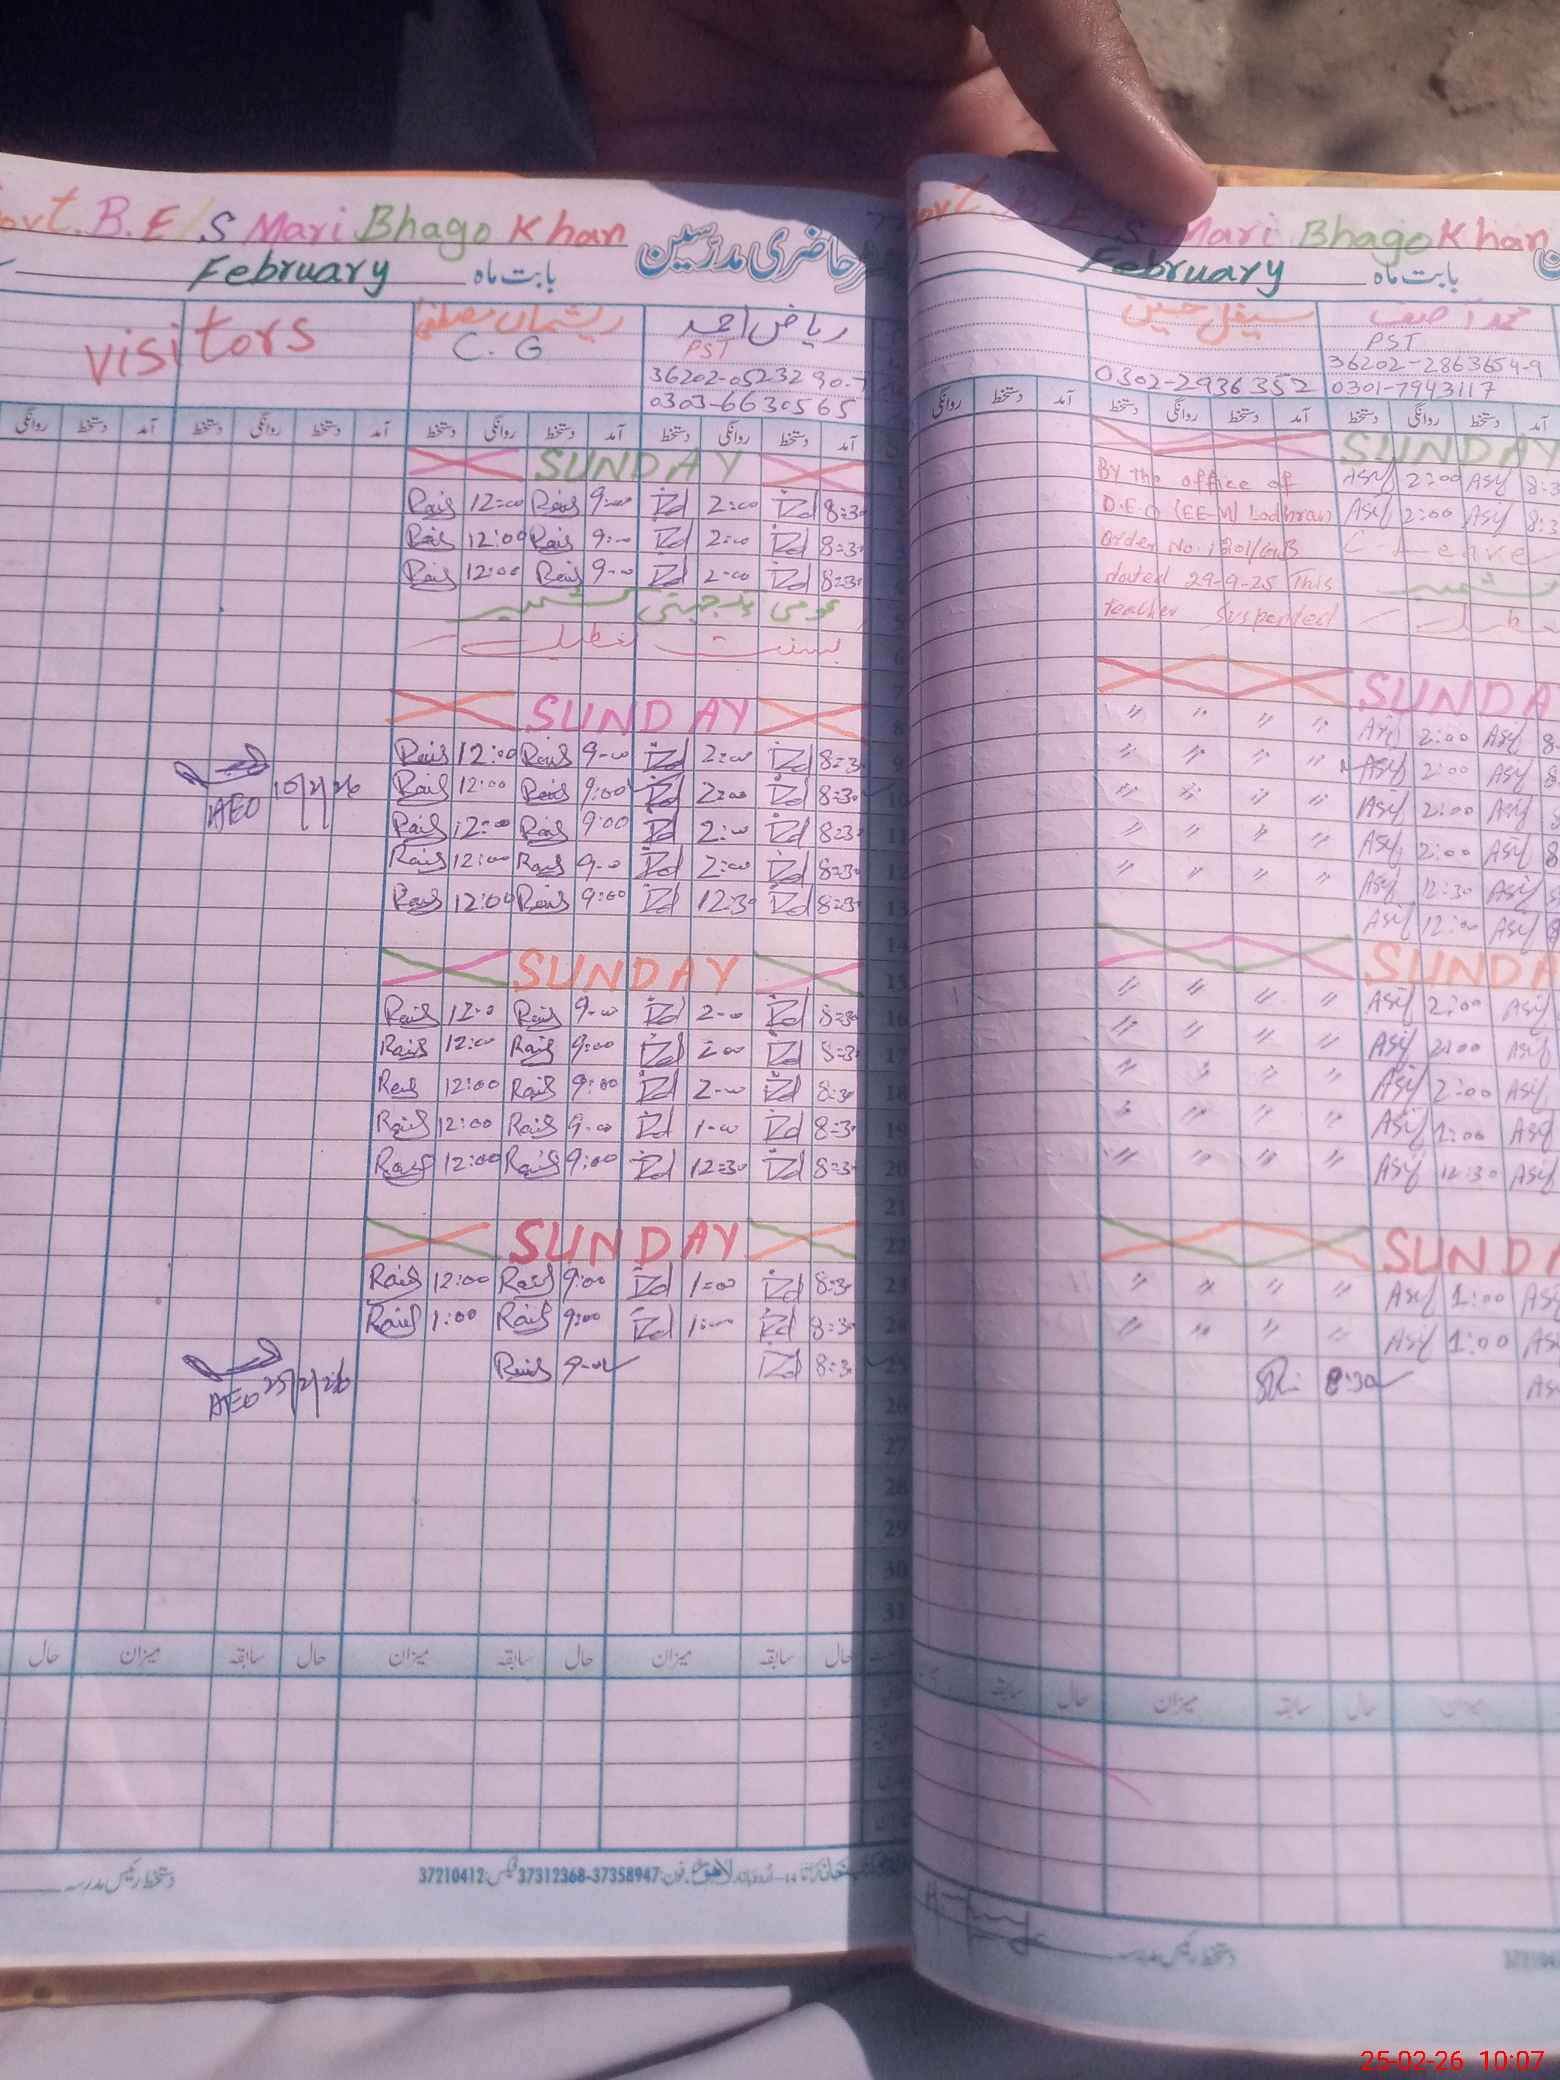 ovt. B. E/S Mari Bhago Khan
حاضری مدرسین
بابت ماہ February
visitors
ریشماں مصطفیٰ
ریاض احمد
C. G
PST
36202-0523290-7
0303-6630565
روانگی دستخط آمد دستخط روانگی دستخط آمد دستخط روانگی دستخط آمد دستخط روانگی دستخط آمد
SUNDAY
Rais 12:00 Rais 9:00 2:00 8:30
Rais 12:00 Rais 9:00 2:00 8:30
Rais 12:00 Rais 9:00 2:00 8:30
یوم یکجہتی کشمیر
بسنت تعطیل
SUNDAY
Rais 12:00 Rais 9:00 2:00 8:30
AEO 10/2/26 Rais 12:00 Rais 9:00 2:00 8:30
Rais 12:00 Rais 9:00 2:00 8:30
Rais 12:00 Rais 9:00 2:00 8:30
Rais 12:00 Rais 9:00 12:30 8:30
SUNDAY
Rais 12:00 Rais 9:00 2:00 8:30
Rais 12:00 Rais 9:00 2:00 8:30
Rais 12:00 Rais 9:00 2:00 8:30
Rais 12:00 Rais 9:00 1:00 8:30
Rais 12:00 Rais 9:00 12:30 8:30
SUNDAY
Rais 12:00 Rais 9:00 1:00 8:30
Rais 1:00 Rais 9:00 1:00 8:30
AEO 25/2/26 Rais 9:00 8:30
حال میزان سابقہ حال میزان سابقہ حال میزان سابقہ حال
دستخط رئیس مدرسہ
فون:37358947-37312368 فیکس:37210412
ovt. B. E S Mari Bhago Khan
بابت ماہ February
محمد آصف
PST
36202-2863654-9
0302-2936352 0301-7943117
روانگی دستخط آمد دستخط روانگی دستخط آمد دستخط روانگی دستخط آمد
SUNDAY
By the office of Asif 2:00 Asif 8:3
D.E.O (EE-M) Lodhran Asif 2:00 Asif 8:3
Order No. 1201/GB C-Leave
dated 29-9-25 This کشمیر
teacher Suspended تعطیل
SUNDA
" " " " Asif 2:00 Asif 8
" " " " Asif 2:00 Asif 8
" " " " Asif 2:00 Asif 8
" " " " Asif 2:00 Asif 8
" " " " Asif 12:30 Asif 8
Asif 12:00 Asif 8
SUNDA
" " " " Asif 2:00 Asif
" " " " Asif 2:00 Asif
" " " " Asif 2:00 Asif
" " " " Asif 1:00 Asif
" " " " Asif 12:30 Asif
SUNDA
" " " " Asif 1:00 As
" " " " Asif 1:00 As
8:30 As
سابقہ حال میزان سابقہ حال میزان
دستخط رئیس مدرسہ
25-02-26 10:07